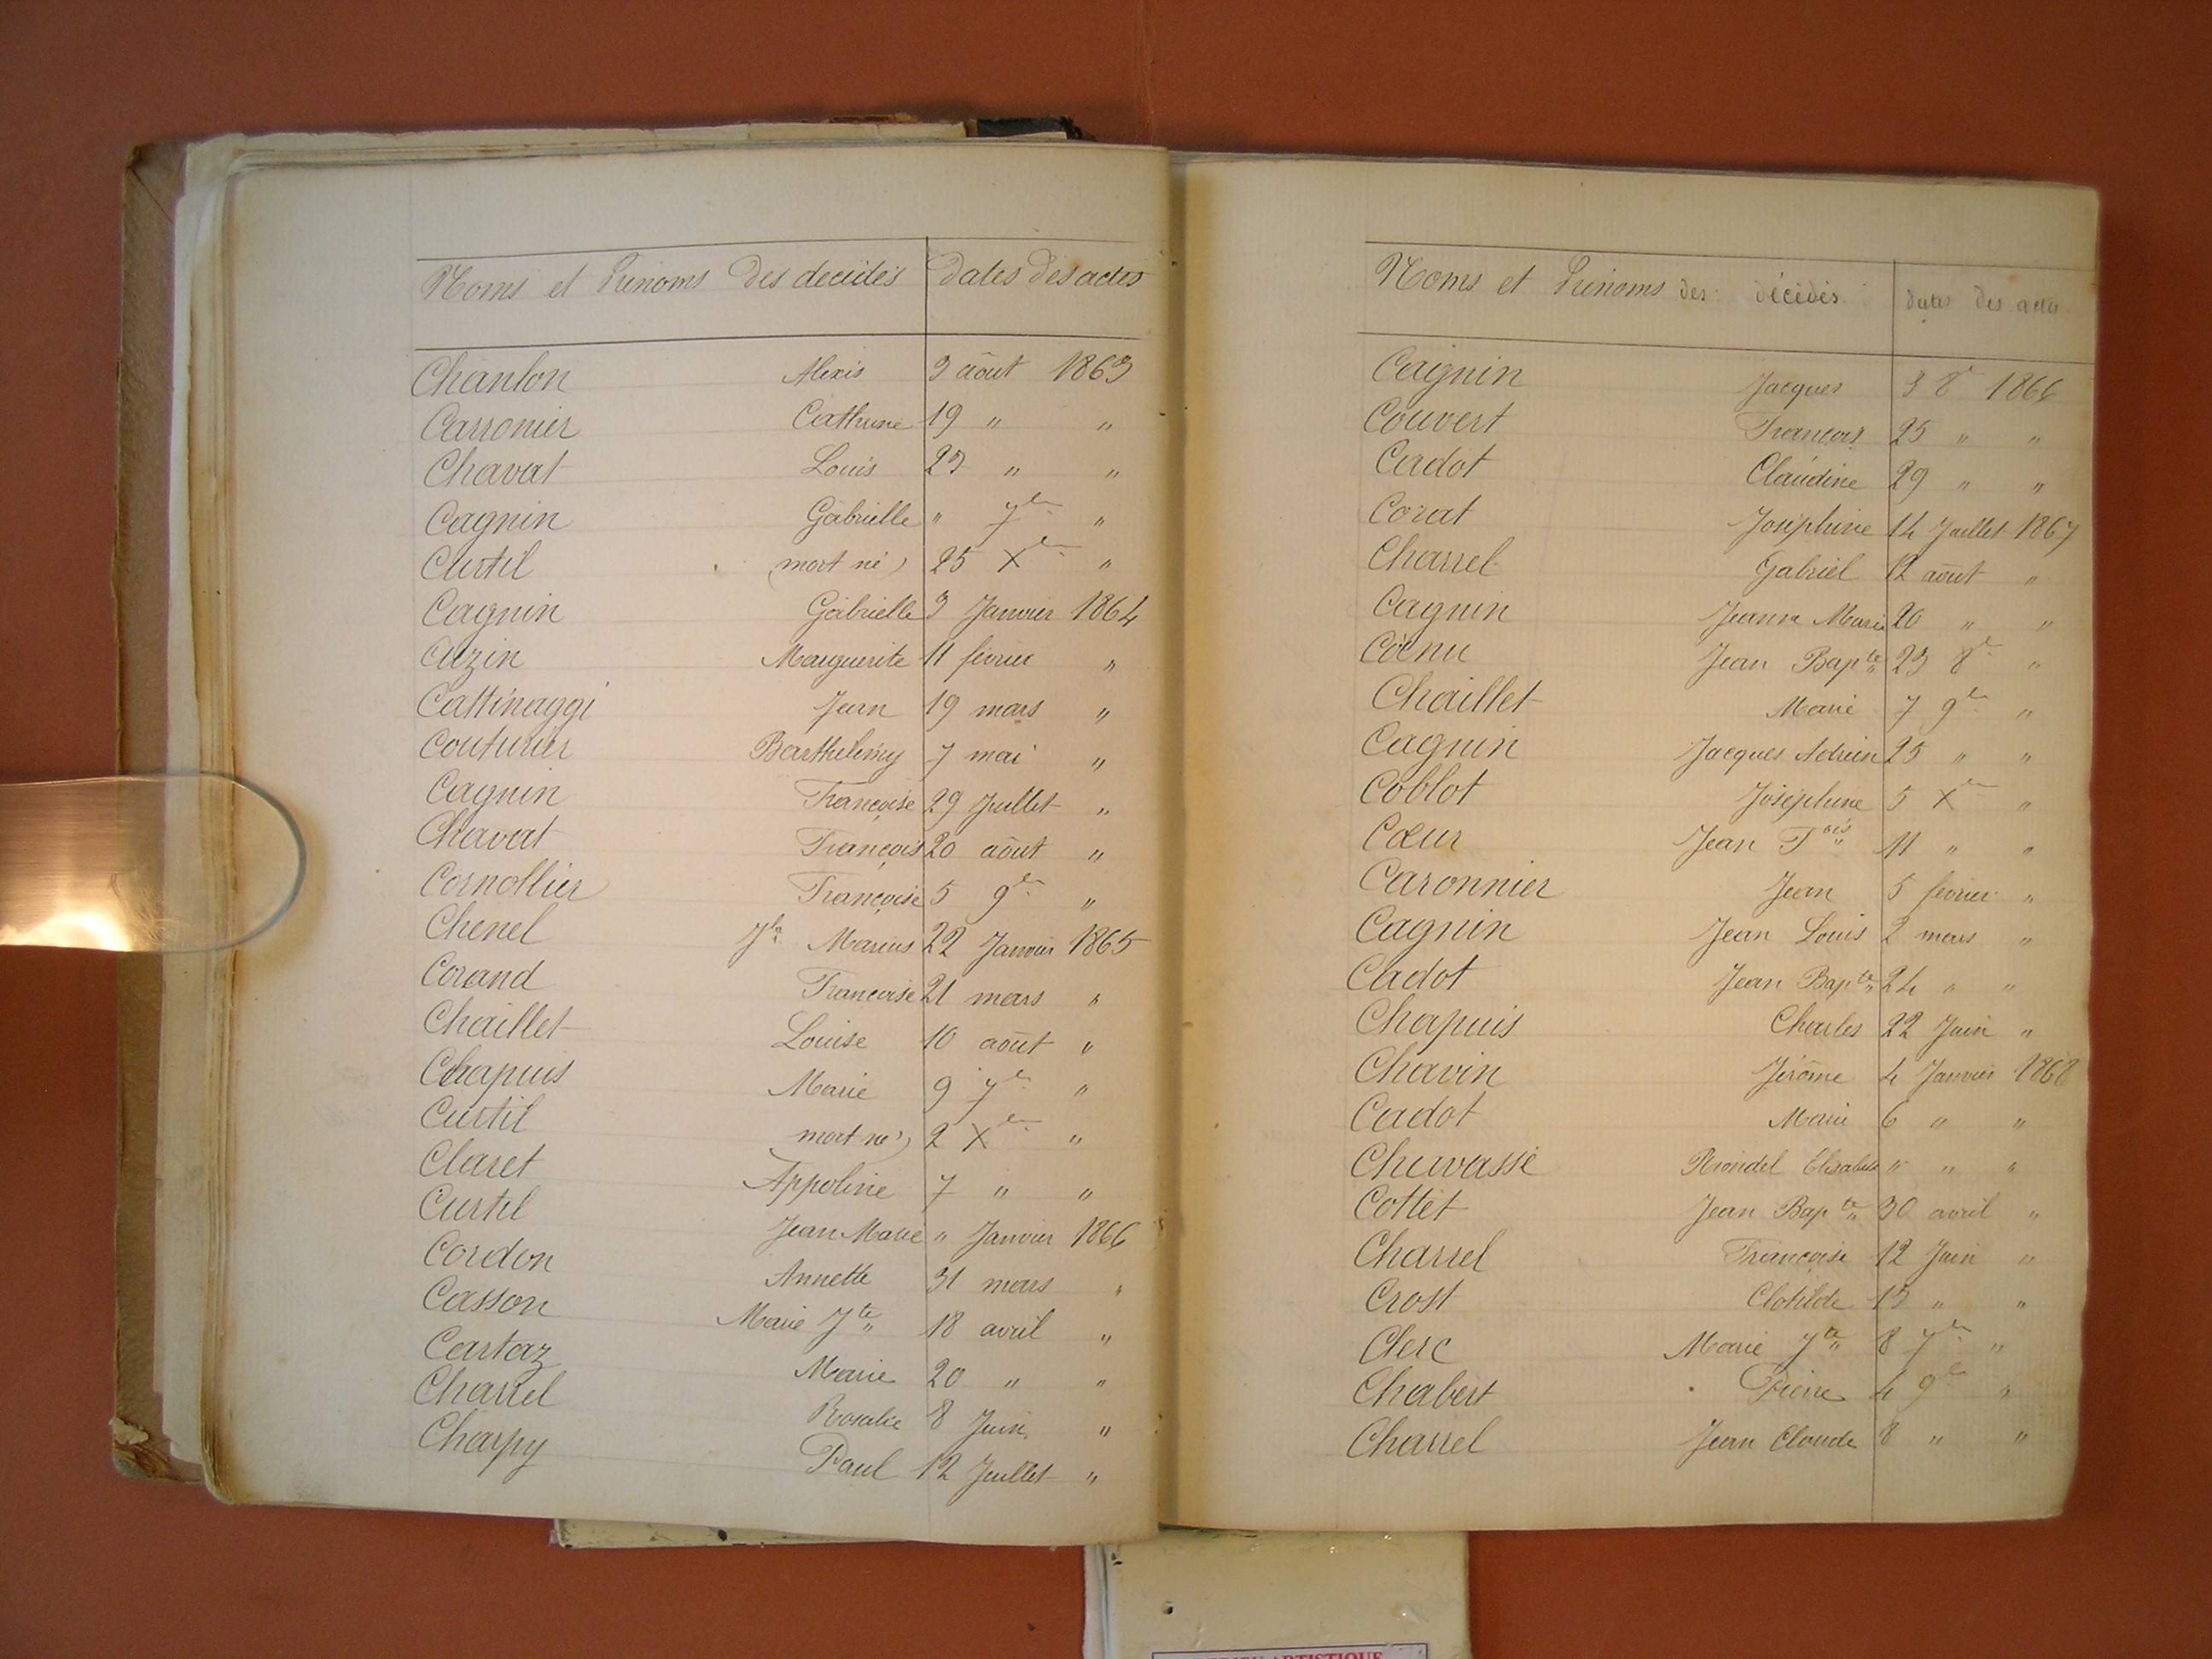 Noms et Prénoms des décédés dates des actes
Chanlon Alexis 3 août 1863
Carronier Catherine 19 " "
Chavat Louis 23 " "
Cagnin Gabrielle " 7bre "
Curtil (mort né) 25 Xbre "
Cagnin Gabrielle 3 Janvier 1864
Cuzin Marguerite 11 février "
Cattinaggi Jean 19 mars "
Couturier Barthélemy 7 mai "
Cagnin Françoise 29 Juillet "
Chavat François 20 août "
Cornollier Françoise 5 9bre "
Chenel Jh Marius 22 Janvier 1865
Corand Françoise 21 mars "
Chaillet Louise 10 août "
Chapuis Marie 9 7bre "
Curtil mort né) 2 Xbre "
Claret Appoline 7 " "
Curtil Jean Marie " Janvier 1866
Cordon Annette 31 mars "
Casson Marie Jte 18 avril "
Cartaz Marie 20 " "
Charrel Rosalie 8 Juin "
Charpy Paul 12 Juillet "
Noms et Prénoms des décédés dates des actes
Cagnin Jacques 3 8e 1866
Couvert François 25 " "
Cadot Claudine 29 " "
Corat Joséphine 14 Juillet 1867
Charrel Gabriel 12 août "
Cagnin Jeanne Marie 20 " "
Coënu Jean Bapte 23 8e "
Chaillet Marie 7 9bre "
Cagnin Jacques Adrien 25 " "
Coblot Joséphine 5 Xbre "
Cœur Jean Fois 11 " "
Caronnier Jean 5 février "
Cagnin Jean Louis 2 mars "
Cadot Jean Bapte 24 " "
Chapuis Charles 22 Juin "
Chavin Jérôme 4 Janvier 1868
Cadot Marie 6 " "
Chavassé Riondel Elisabeth " " "
Cottet Jean Bapte 30 avril "
Charrel Françoise 12 Juin "
Crost Clotilde 13 " "
Clerc Marie Jte 8 7bre "
Chabert Pierre 4 9bre "
Charrel Jean Claude 8 " "
ARTISTIQUE